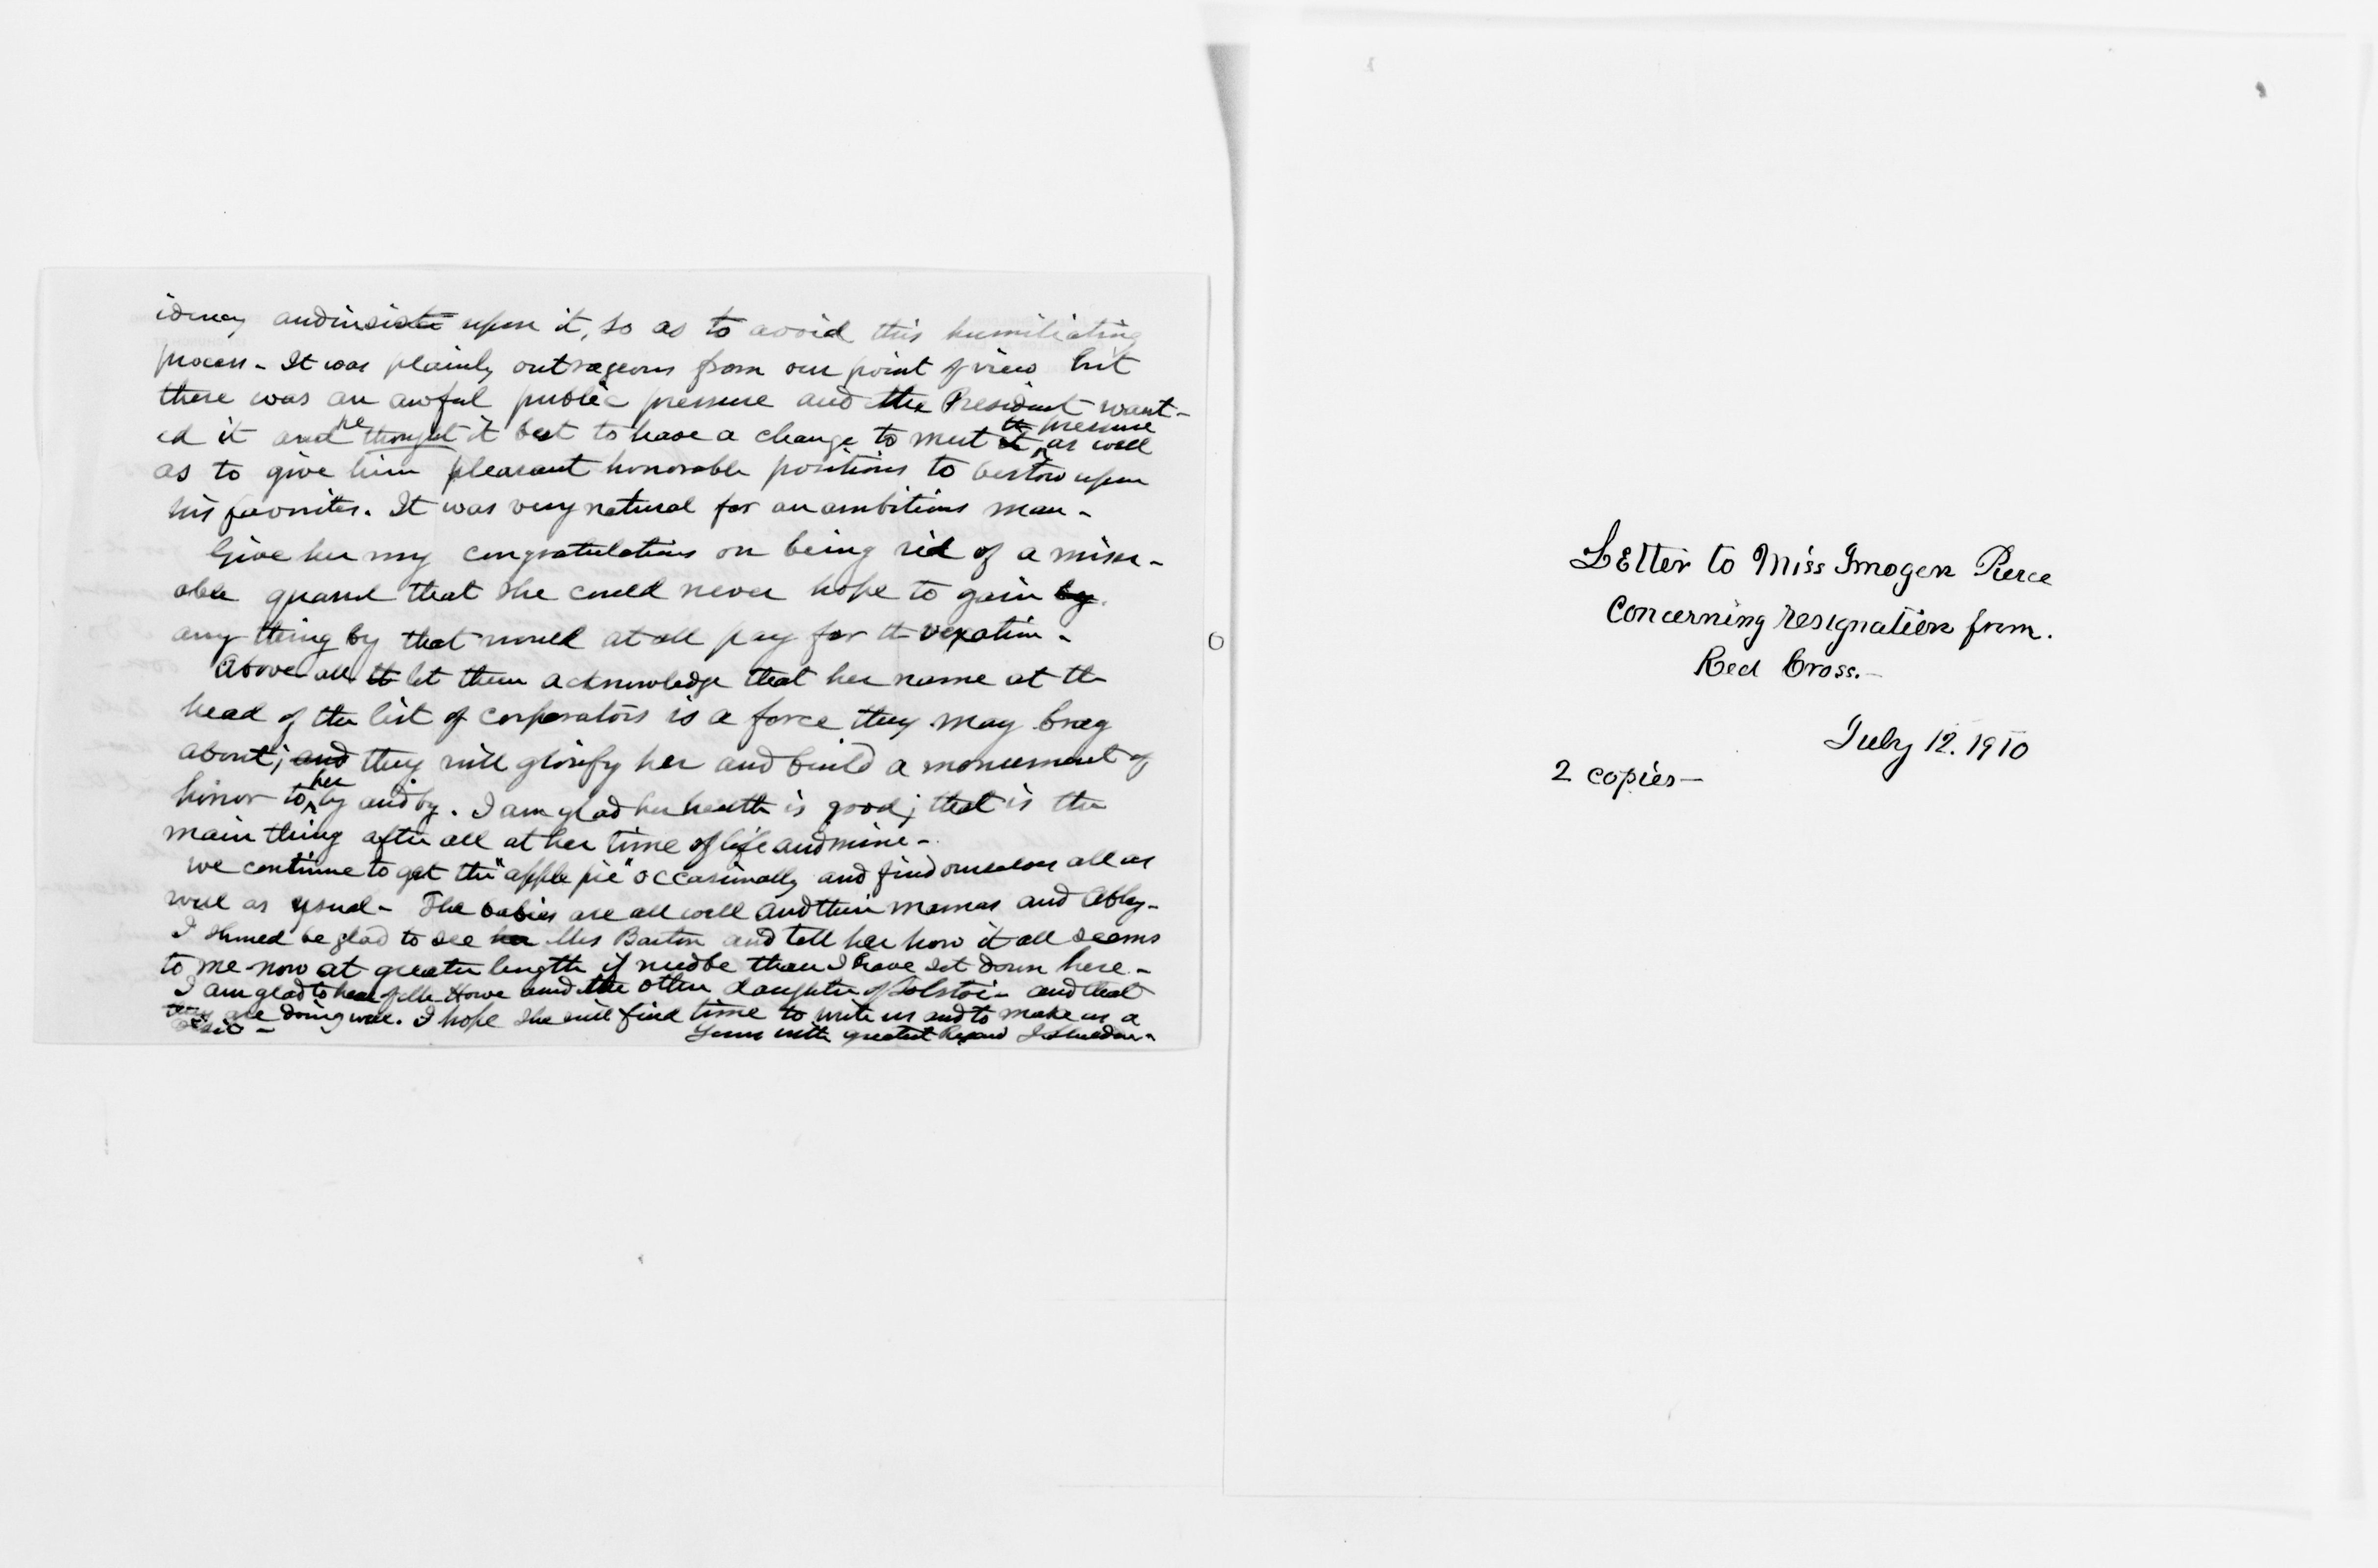 idency and insiste upon it, so as to avoid this humiliating
process - It was plainly outrageous from our point of view but
there was an awful public pressure and the President want-
ed it and he thought it best to have a change to meet it the pressure as well
as to give him pleasant honorable positions to bestow upon
his favorites. It was very natural for an ambitious man -
Give her my congratulations on being rid of a miser-
able quarrel that she could never hope to gain by
any thing by that would at all pay for th vexation -
Above all th let them acknowledge that her name at th
head of the list of corporators is a force they may brag
about; and they will glorify her and build a monument of
honor to her by and by. I am glad her health is good; that is the
main thing after all at her time of life and mine -
we continue to get the "apple pie" occasionally and find ourselves all as
well as usual - The babies are all well and their mamas and Abby -
I shoued be glad to see her Mis Barton and tell her how it all seems
to me now at greater length if need be than I have set down here -
I am glad to hear of Howe and the other daughter of Tolstoi - and that
they are doing well. I hope she will find time to write us and to make us a
visit -
Yours with greatest Regard J. Sheldon -
Letter to Miss Imogen Pierce
Concerning resignation from.
Red Cross. -
July 12. 1910
2 copies -